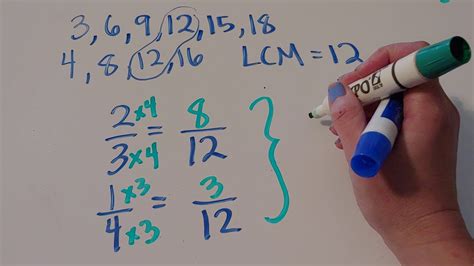 3, 6, 9, 12, 15, 18
4, 8, 12, 16 LCM = 12
2 ×4 = 8
3 ×4 12
1 ×3 = 3
4 ×3 12
EXPO